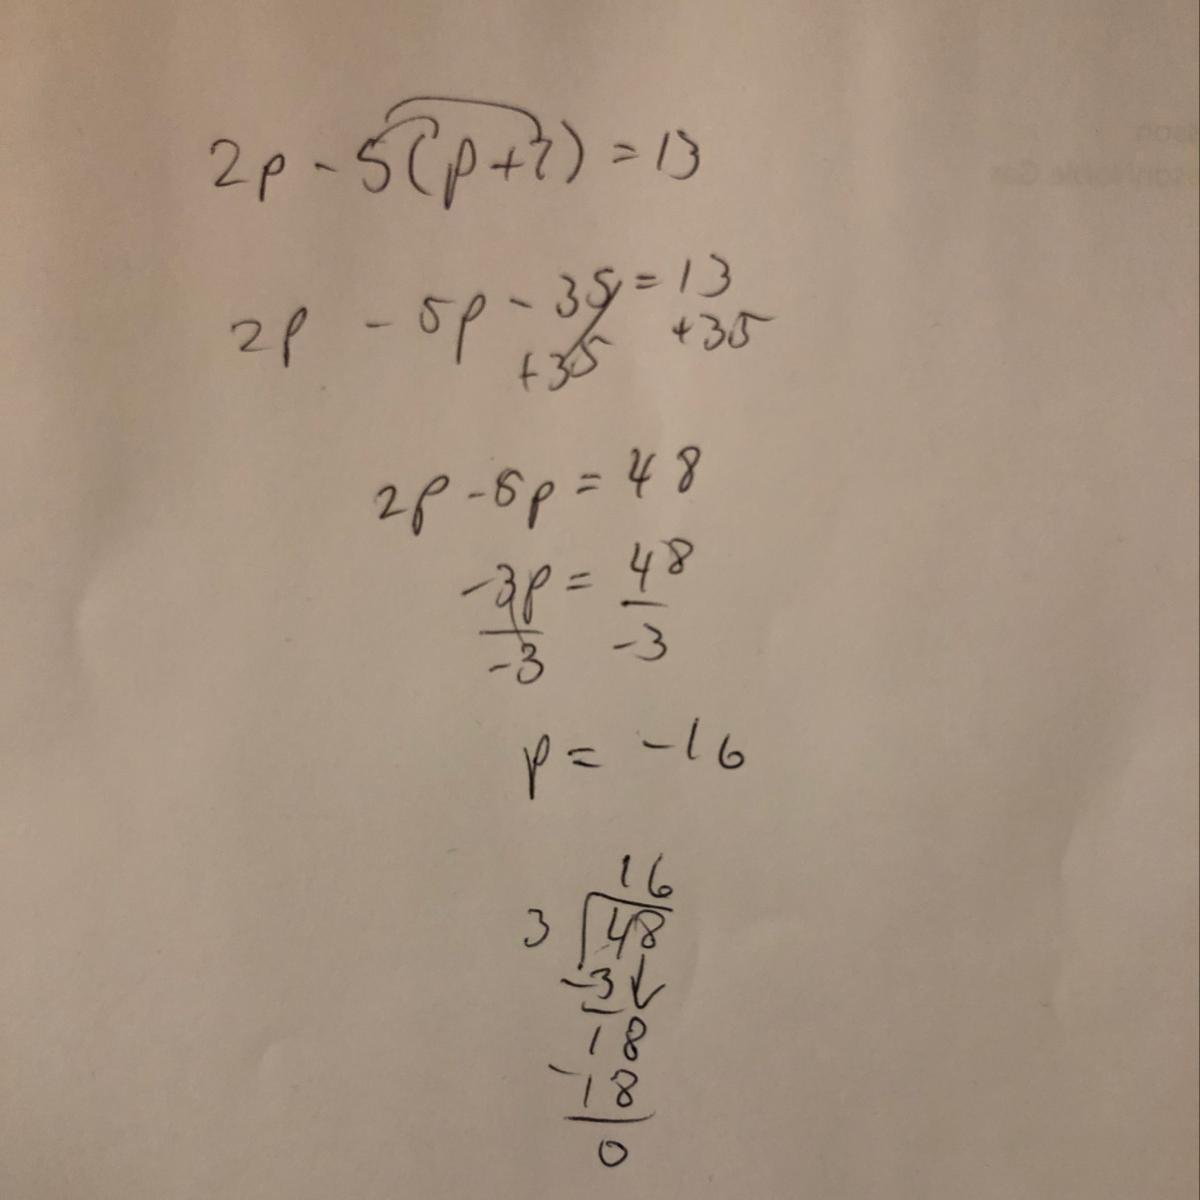 2p - 5(p+7) = 13
2p - 5p - 35 = 13
+35 +35
2p - 5p = 48
-3p = 48
-3 -3
p = -16
16
3 48
-3
18
-18
0